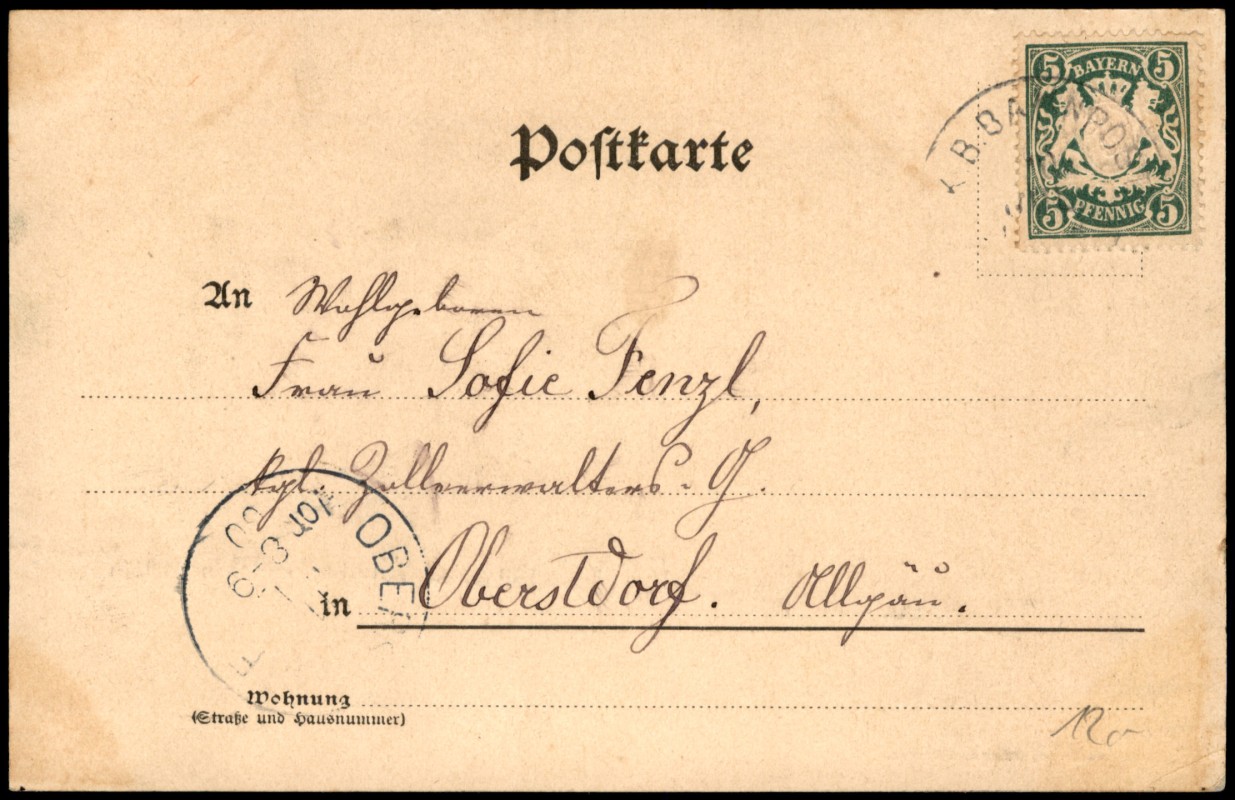 Postkarte
5 BAYERN 5
5 PFENNIG 5
K.B.BAHNPOST
An Wohlgeboren
Frau Sofie Fenzl,
kgl. Zollverwalters-G.
OBER
VOR 8-9
00
in Oberstdorf. Allgäu.
Wohnung
(Straße und Hausnummer)